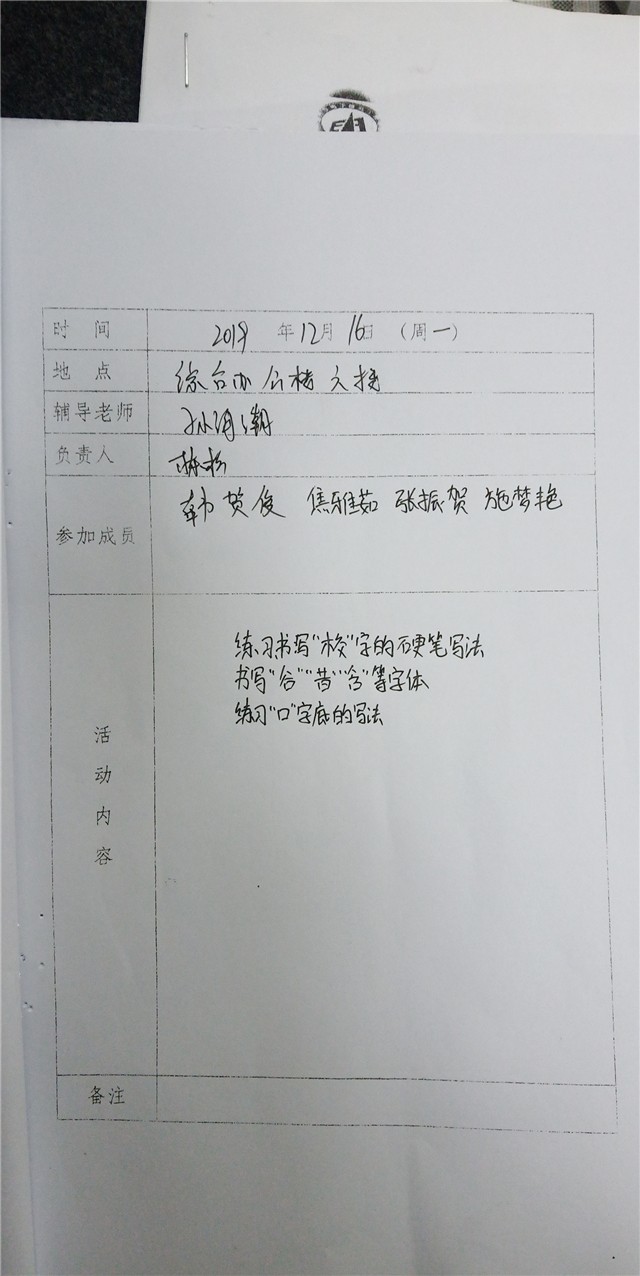 时 间 2019 年 12 月 16 日 (周一)
地 点 综合办公楼 大楼
辅导老师 孙
负责人
参加成员 韩贺俊 焦雅茹 张振贺 施梦艳
活动内容
练习书写"校"字的硬笔写法
书写"合""昔""含"等字体
练习"口"字底的写法
备注